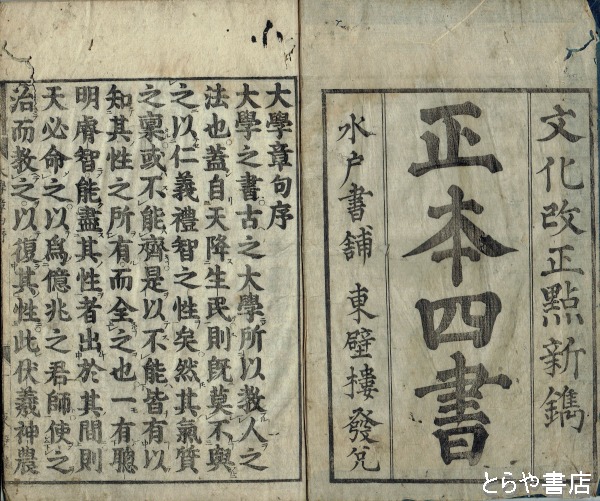 文化改正點新鐫
正本四書
水戸書舗 東壁摟發兌
小
大學章句序
大學之書古之大學所以教人之
法也蓋自天降生民則既莫不與
之以仁義禮智之性矣然其氣質
之稟或不能齊是以不能皆有以
知其性之所有而全之也一有聰
明睿智能盡其性者出於其間則
天必命之以爲億兆之君師使之
治而教之以復其性此伏羲神農
とらや書店